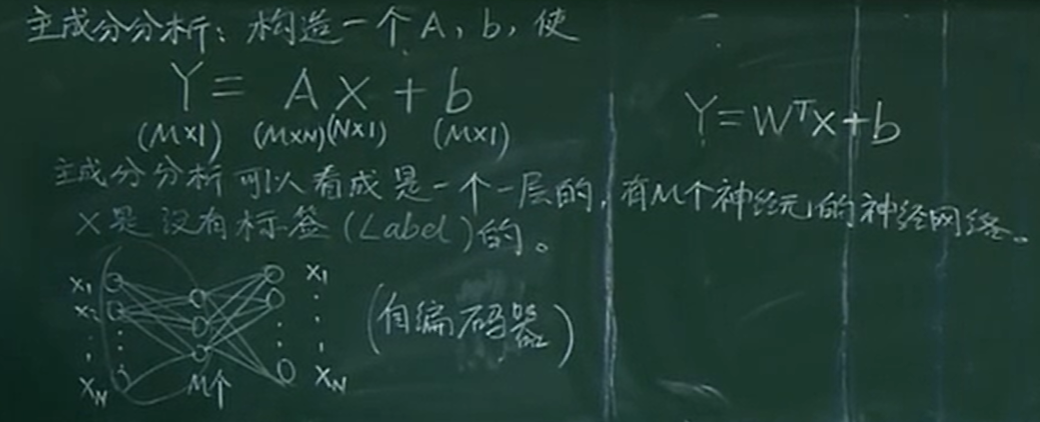 主成分分析：构造一个A，b，使
Y = AX + b
(M×1) (M×N)(N×1) (M×1)
Y=WᵀX+b
主成分分析可以看成是一个一层的，有M个神经元的神经网络。
X是没有标签(Label)的。
x₁ x₁
x₂
⋮ ⋮
X_N M个 X_N
(自编码器)